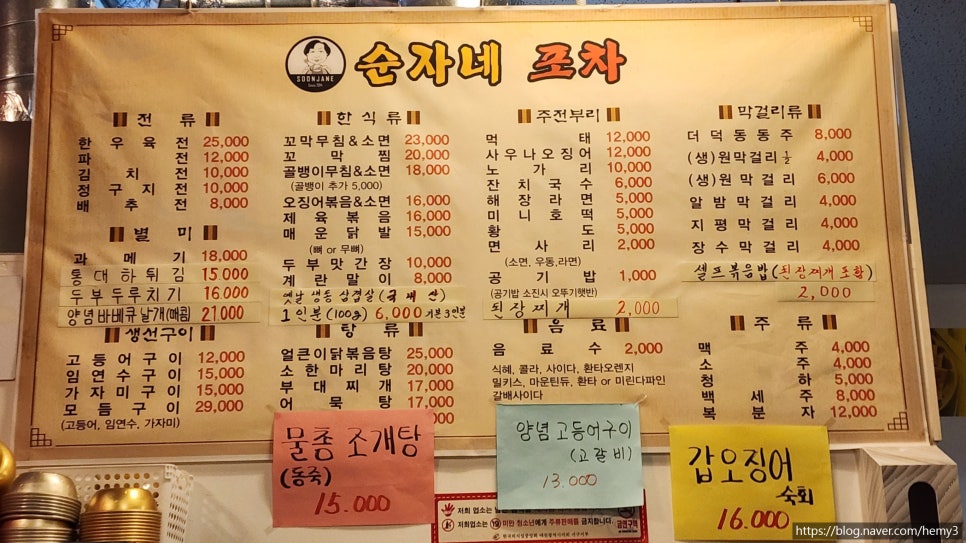 SOONJANE
순자네 포차
전 류
한 우 육 전 25,000
파 전 12,000
김 치 전 10,000
정 구 지 전 10,000
배 추 전 8,000
별 미
과 메 기 18,000
통 대 하 튀 김 15.000
두 부 두 루 치 기 16.000
양념 바베큐 날개(매콤) 21000
생선구이
고 등 어 구 이 12,000
임 연 수 구 이 15,000
가 자 미 구 이 15,000
모 듬 구 이 29,000
(고등어, 임연수, 가자미)
한 식 류
꼬막무침&소면 23,000
꼬 막 찜 20,000
골뱅이무침&소면 18,000
(골뱅이 추가 5,000)
오징어볶음&소면 16,000
제 육 볶 음 16,000
매 운 닭 발 15,000
(뼈 or 무뼈)
두 부 맛 간 장 10,000
계 란 말 이 8,000
옛날 생통 삼겹살(국내산)
1인분(100g) 6,000 기본3인분
탕 류
얼큰이닭볶음탕 25,000
소 한 마 리 탕 20,000
부 대 찌 개 17,000
어 묵 탕 17,000
주전부리
먹 태 12,000
사 우 나 오 징 어 12,000
노 가 리 10,000
잔 치 국 수 6,000
해 장 라 면 5,000
미 니 호 떡 5,000
황 도 5,000
면 사 리 2,000
(소면, 우동,라면)
공 기 밥 1,000
(공기밥 소진시 오뚜기햇반)
된 장 찌 개 2,000
음 료
음 료 수 2,000
식혜, 콜라, 사이다, 환타오렌지
밀키스, 마운틴듀, 환타 or 미린다파인
갈배사이다
막걸리류
더 덕 동 동 주 8,000
(생)원막걸리½ 4,000
(생)원 막 걸 리 6,000
알 밤 막 걸 리 4,000
지 평 막 걸 리 4,000
장 수 막 걸 리 4,000
셀프볶음밥(된장찌개 포함)
2,000
주 류
맥 주 4,000
소 주 4,000
청 하 5,000
백 세 주 8,000
복 분 자 12,000
물총 조개탕
(동죽)
15.000
양념 고등어구이
(고갈비)
13.000
갑오징어
숙회
16.000
저희 업소는
저희업소는 19 미만 청소년에게 주류판매를 금지합니다.
금연구역
https://blog.naver.com/hemy3